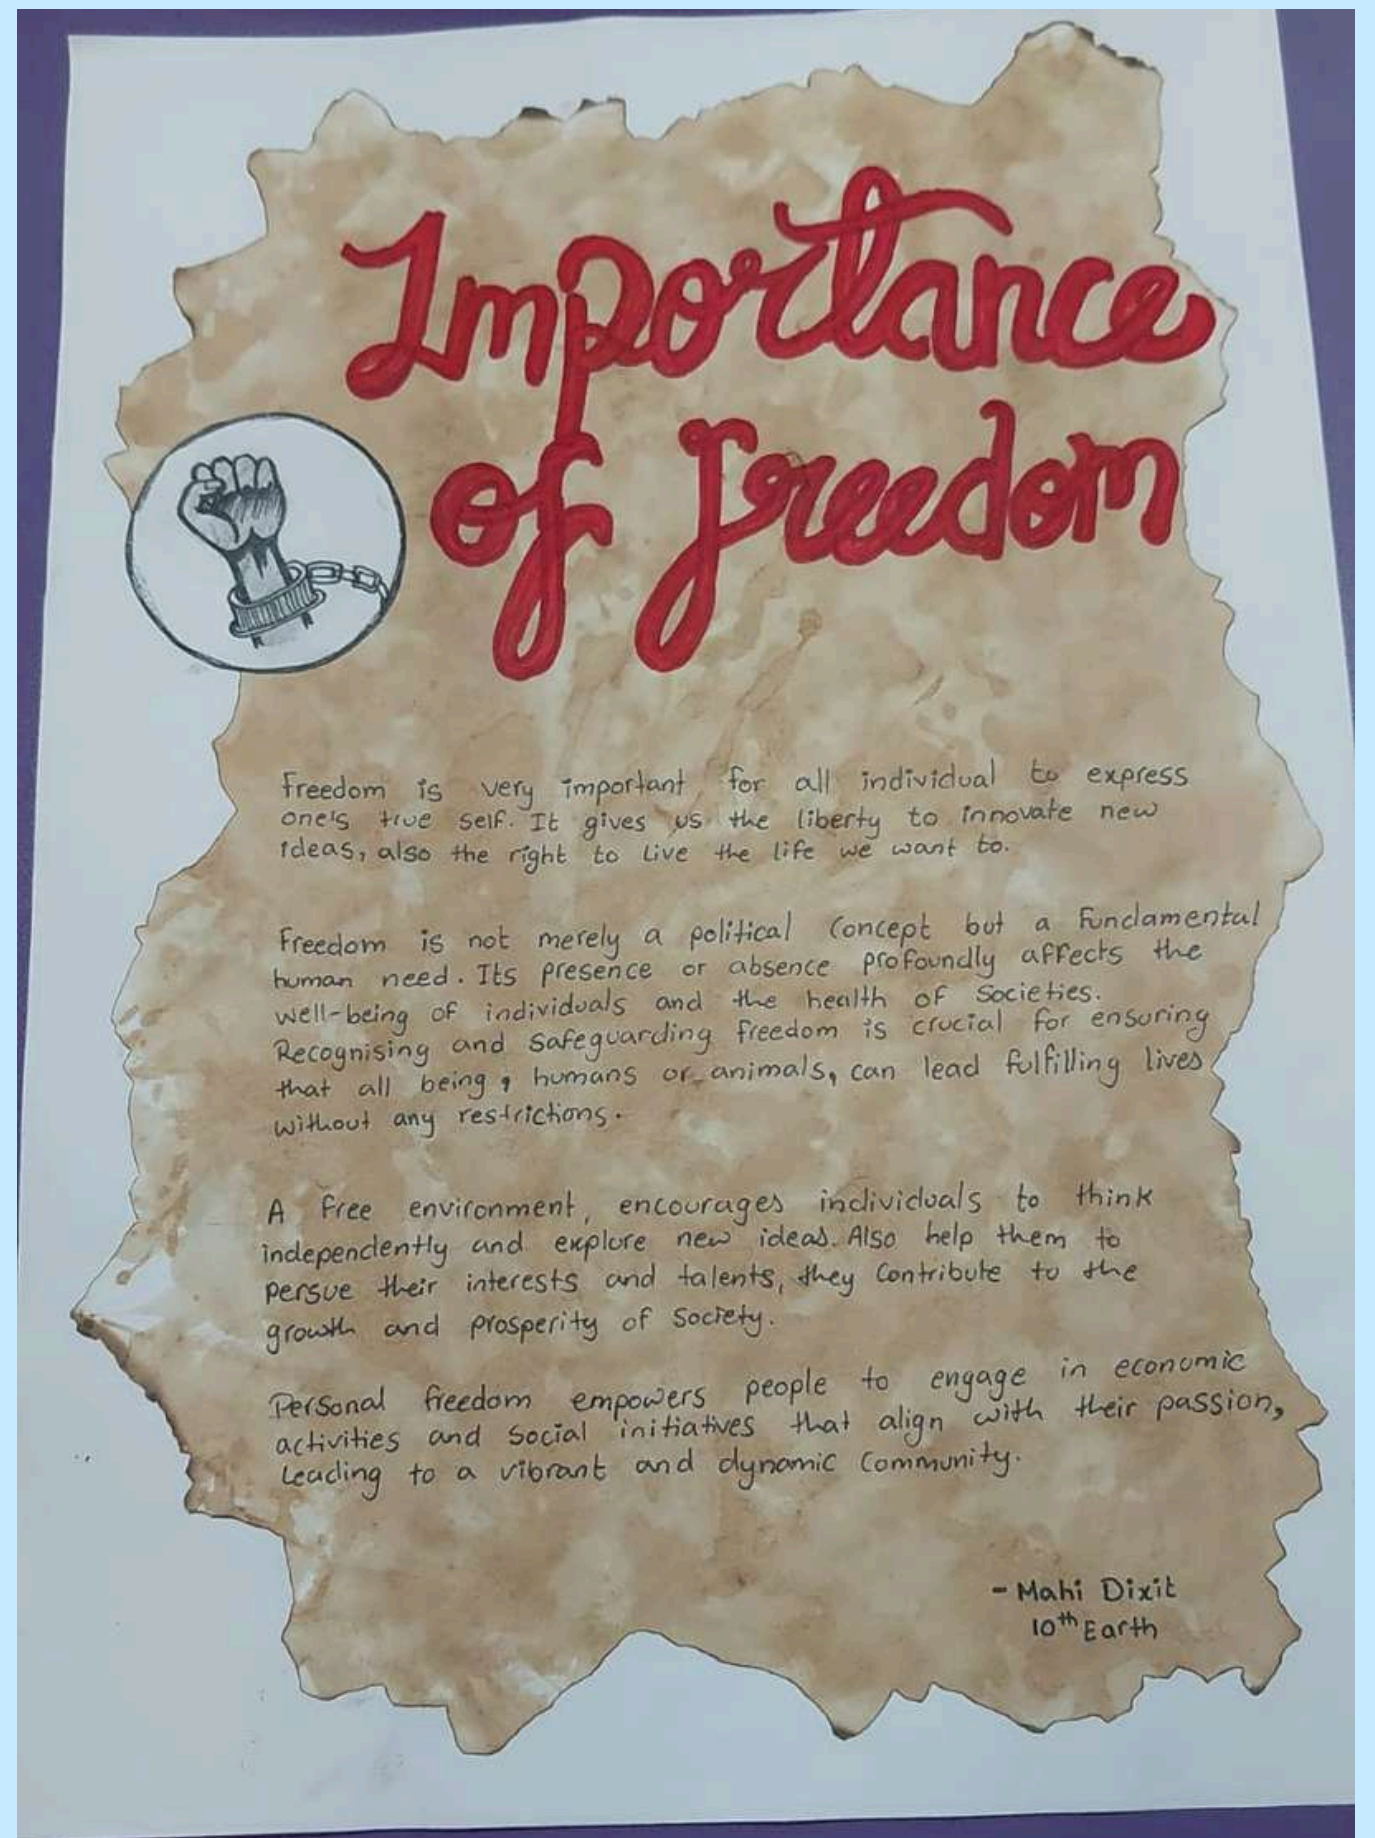 Importance
of freedom
Freedom is very important for all individual to express
one's true self. It gives us the liberty to innovate new
ideas, also the right to live the life we want to.
Freedom is not merely a political concept but a fundamental
human need. Its presence or absence profoundly affects the
well-being of individuals and the health of societies.
Recognising and safeguarding freedom is crucial for ensuring
that all being, humans or animals, can lead fulfilling lives
without any restrictions.
A free environment, encourages individuals to think
independently and explore new ideas. Also help them to
persue their interests and talents, they contribute to the
growth and prosperity of society.
Personal freedom empowers people to engage in economic
activities and social initiatives that align with their passion,
leading to a vibrant and dynamic community.
- Mahi Dixit
10th Earth